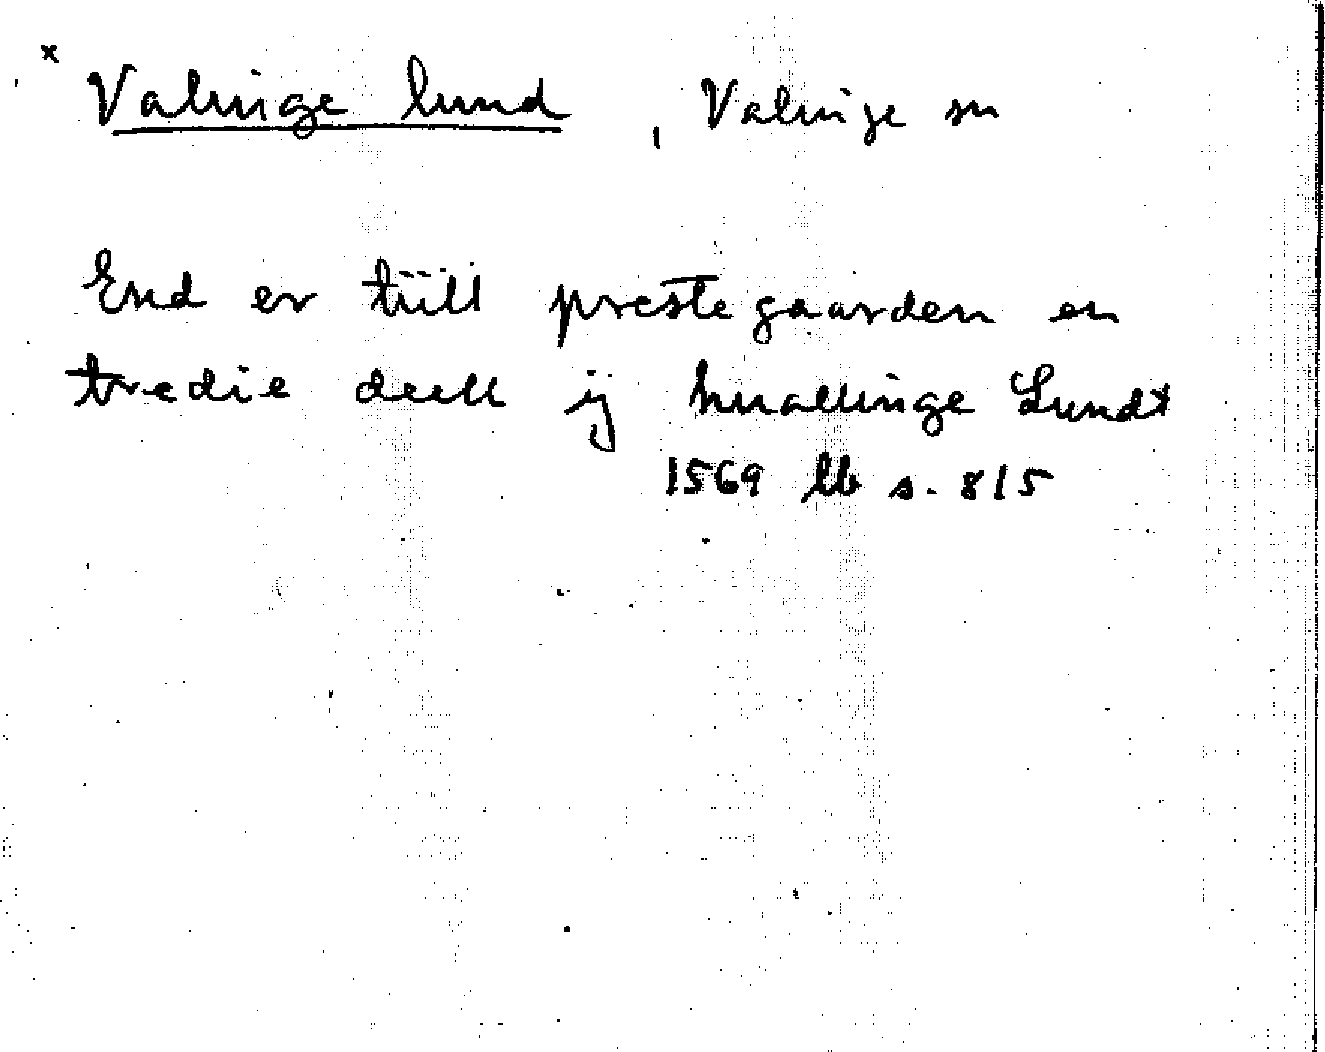 x Valinge lund , Valinge sn
End er tiill prestegaarden en
tredie deell ij huallinge Lundt
1569 lb s. 815